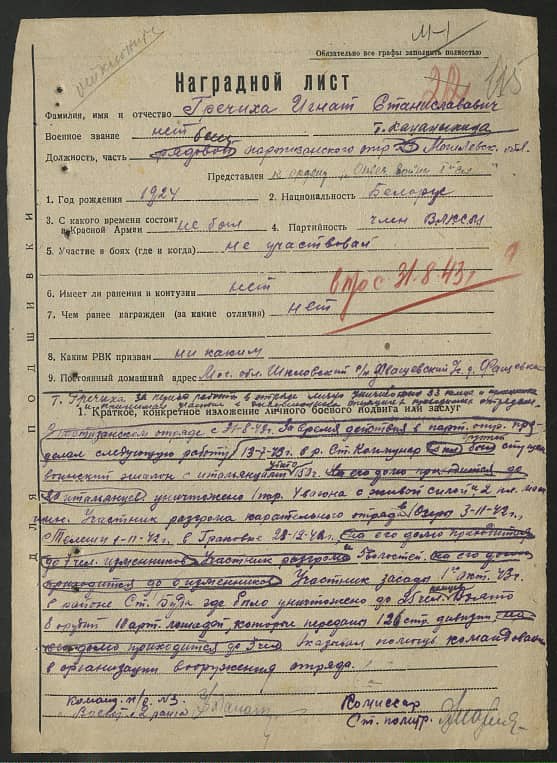 М-1
Обязательно все графы заполнить полностью
Наградной лист
Фамилия, имя и отчество Гречиха Игнат Станиславович
Военное звание нет
Должность, часть рядовой партизанского отр Могилевск. обл.
Представлен к ордену „Отеч войны I ст"
1. Год рождения 1924 2. Национальность Белорус
3. С какого времени состоит в Красной Армии не был 4. Партийность член ВЛКСМ
5. Участие в боях (где и когда) не участвовал
в п/о с 31.8.43 г
6. Имеет ли ранения и контузии нет
7. Чем ранее награжден (за какие отличия) нет
8. Каким РВК призван ни каким
9. Постоянный домашний адрес Мог. обл. Шкловский р/н Фащевский с/с д. Фащевка
Т. Гречиха за период работы в отряде лично уничтожил 33
1. Краткое, конкретное изложение личного боевого подвига или заслуг
В партизанском отряде с 31-8-43 г. За время действия в парт. отр. про
делал следующую работу: 13-7-43 г. в р. Ст. Коммунар был спущен
воинский эшалон с итальянцами На его долю приходится до
20 итальянцев уничтожено вагона с живой силой и 2 пл.
Участник разгрома карательного отряда 3-11-42 г,
8-11-42 г, в 28-12-42 г. на его долю приходится
до чел. изменников Участник разгрома волостей, на его долю
приходится до изменников Участник засады 1 окт. 43 г.
в районе Ст. Буда где было уничтожено до 25 чел. Взято
оружие 10 арт. лошадей, которые переданы 120 стр. дивизии на
его долю приходится до Оказывал помощь командованию
в организации вооружения отряда.
Команд. п/о. №3
Комиссар
Ст. политр.
ДЛЯ ПОДШИВКИ